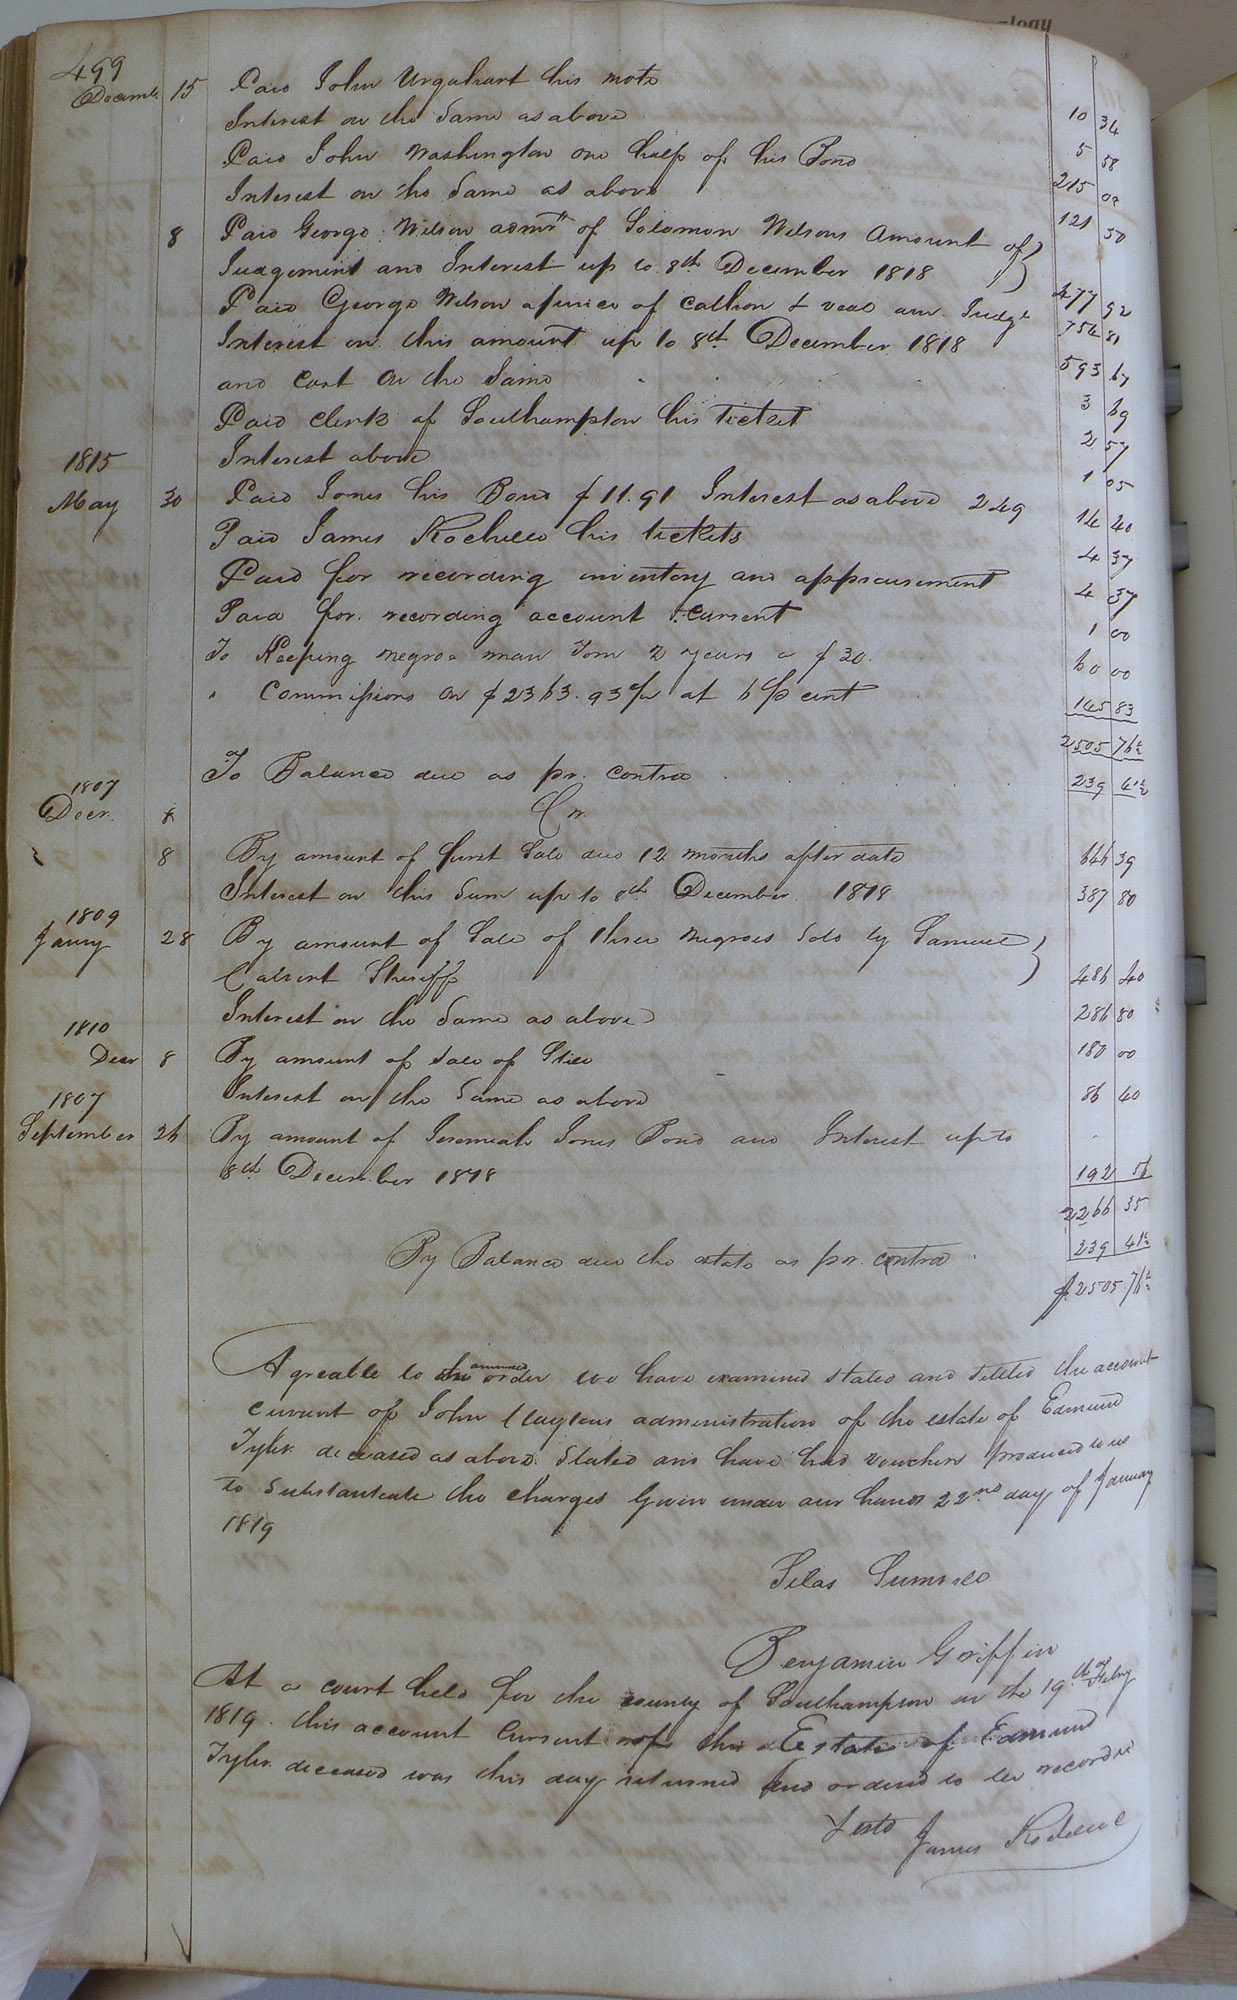 499
Decembr 15 Paid John Urquhart his note 10 34
Interest on the Same as above 5 58
Paid John Washington one half of his Bond 215 02
Interest on the Same as above 121 50
8 Paid George Wilson admr of Solomon Wilsons Amount of
Judgement and Interest up to 8th December 1818 477 92
Paid George Wilson of Calhon & veal am. Judgt 754 81
Interest on this amount up to 8th December 1818 593 67
and Cost on the Same 3 69
Paid Clerk of Southampton his Ticket 2 57
1815 Interest above 1 05
May 30 Paid Jones his Bond $11.91 Interest as above 249 14 40
Paid James Rochelle his tickets 4 37
Paid for recording inventory and appraisement 4 37
Paid for recording account Current 1 00
To Keeping negroe man Tom 2 years a $30. 60 00
" Commissions on $2363.93 at 6 pr cent 145 83
2505 76½
To Balance due as pr. contra 239 41½
1807
Decr. Cr.
8 By amount of first Sale due 12 months after date 646 39
Interest on this Sum up to 8th December 1818 387 80
1809
Jany 28 By amount of Sale of three negroes Sold by Samuel
Calvert Sheriff 486 40
Interest on the Same as above 286 80
1810
Decr 8 By amount of Sale of Still 180 00
Interest on the Same as above 86 40
1807
September 26 By amount of Jeremiah Jones Bond and Interest up to
8th December 1818 192 56
2266 35
By Balance due the estate as pr. contra 239 41½
$2505.76½
Agreable to the annexed order we have examined Stated and Settled the account
Current of John Claytons administration of the estate of Edmund
Tyler deceased as above Stated and have had vouchers produced to us
to Substantiate the Charges Given under our hands 22nd day of January
1819
Silas Summrell
Benjamin Griffin
At a court held for the county of Southampton on the 19th of Feby
1819. this account Current of the Estate of Edmund
Tyler deceased was this day returned and ordered to be recorded
Teste James Rochelle